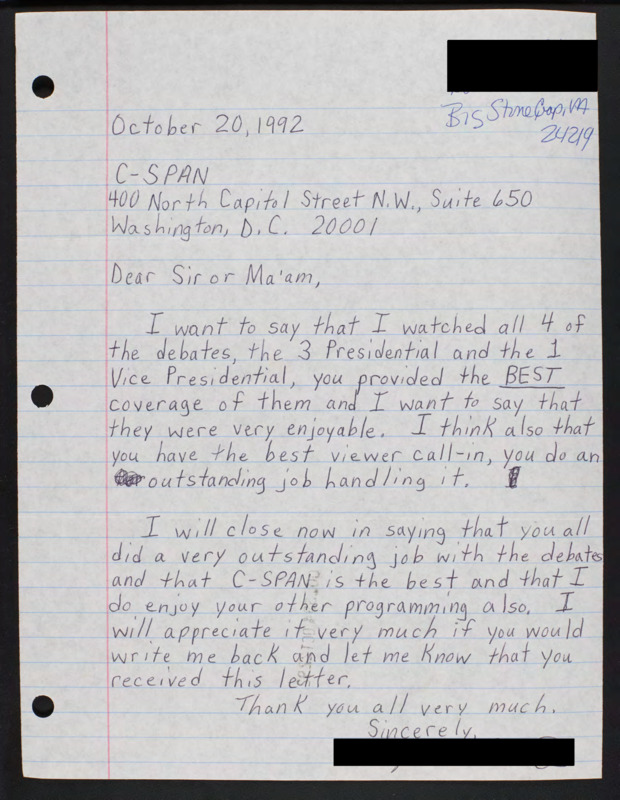 Big Stone Gap, VA
24219
October 20, 1992
C-SPAN
400 North Capitol Street N.W., Suite 650
Washington, D.C. 20001
Dear Sir or Ma'am,
I want to say that I watched all 4 of
the debates, the 3 Presidential and the 1
Vice Presidential, you provided the BEST
coverage of them and I want to say that
they were very enjoyable. I think also that
you have the best viewer call-in, you do an
outstanding job handling it.
I will close now in saying that you all
did a very outstanding job with the debates
and that C-SPAN is the best and that I
do enjoy your other programming also. I
will appreciate it very much if you would
write me back and let me know that you
received this letter.
Thank you all very much.
Sincerely,